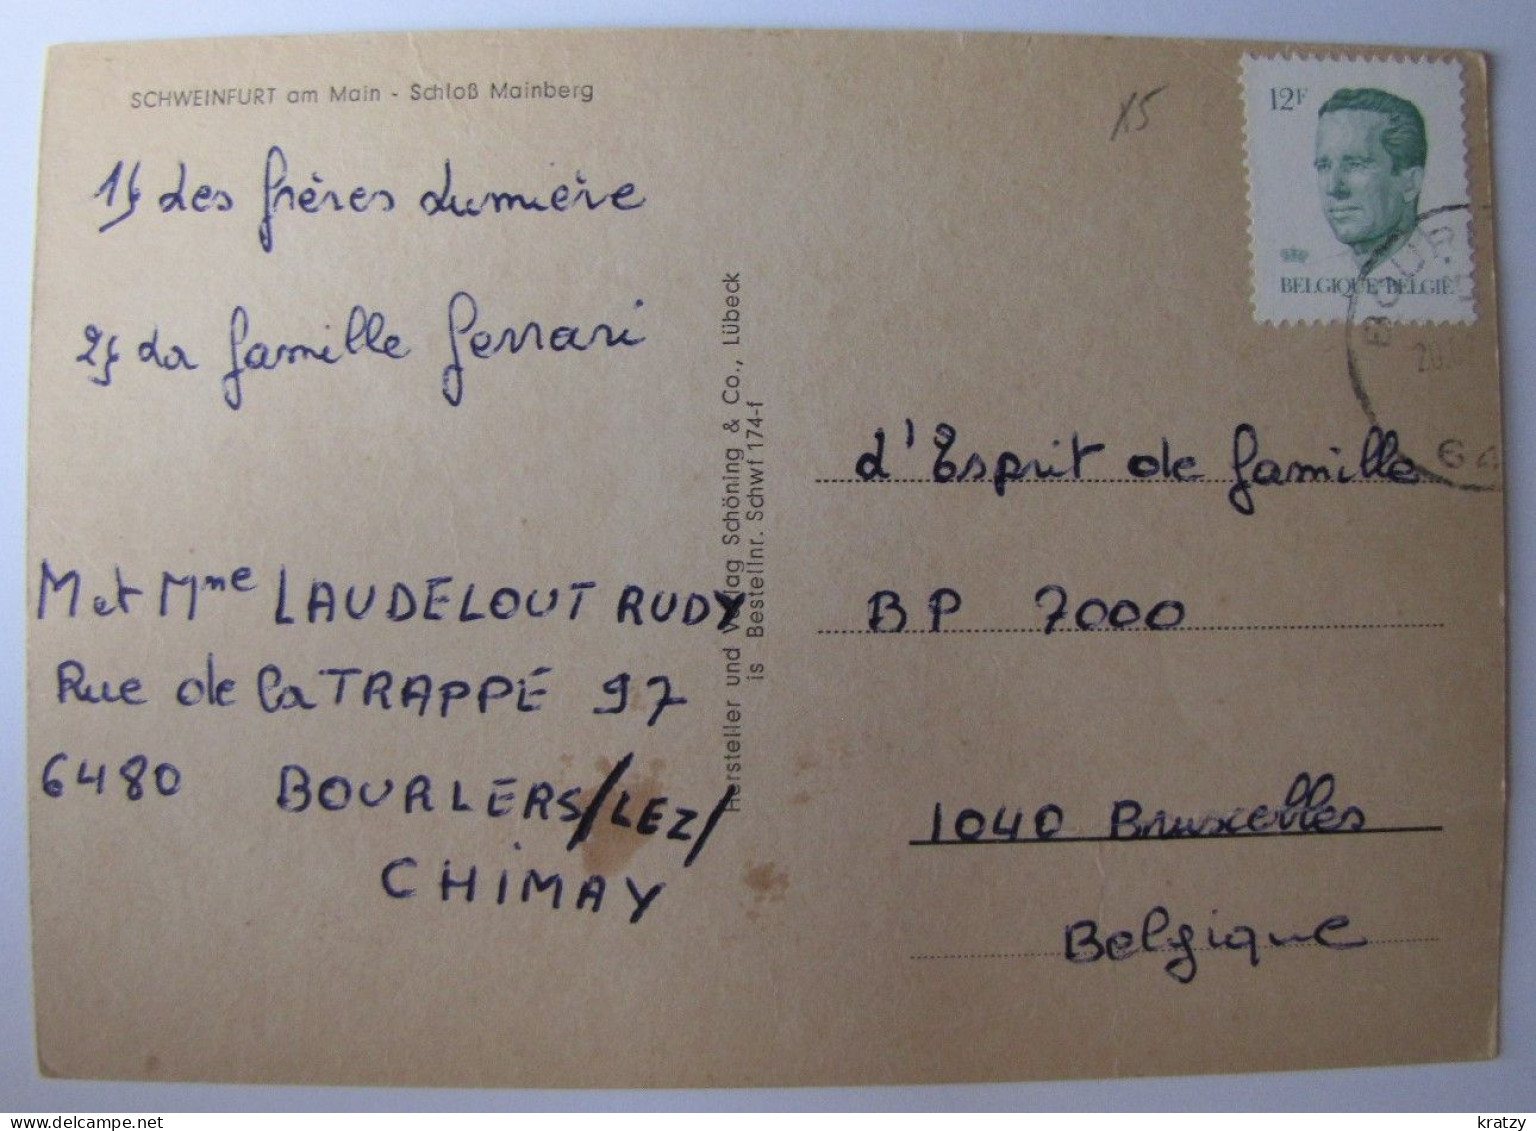 SCHWEINFURT am Main - Schloß Mainberg
x5
12F
BELGIQUE·BELGIË
1) Les frères Lumière
2) La famille Ferrari
M et Mme LAUDELOUT RUDY
Rue de la TRAPPE 97
6480 BOURLERS/LEZ/
CHIMAY
Hersteller und Verlag Schöning & Co., Lübeck
is Bestellnr. Schwf 174-f
BOUR
20.
64
d'Esprit de famille
BP 7000
1040 Bruxelles
Belgique
kratzy